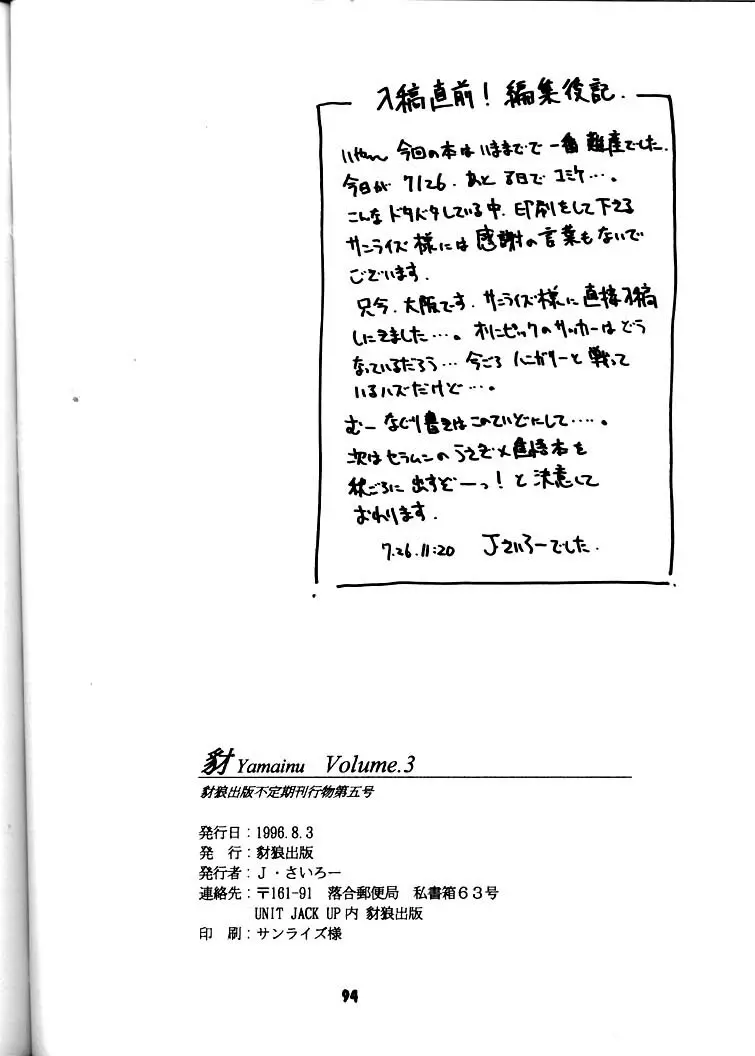 入稿直前！編集後記.
いやーん 今回の本はいままでで一番難産でした.
今日が 7/26. あと8日でコミケ….
こんなドタバタしている中. 印刷をして下さる
サンライズ様には感謝の言葉もないで
ございます.
只今. 大阪です. サンライズ様に直接入稿
しにきました…。オリンピックのサッカーはどう
なっているだろう… 今ごろハンガリーと戦って
いるハズだけど…。
むー なぐり書きはこのていどにして….。
次はセラムンのうさぎ×
本を
秋ごろに出すぞーっ！と決意して
おわります.
7.26.11:20 Jさいろーでした.
豺 Yamainu Volume.3
豺狼出版不定期刊行物第五号
発行日：1996.8.3
発　行：豺狼出版
発行者：Ｊ・さいろー
連絡先：〒161-91　落合郵便局　私書箱６３号
UNIT JACK UP内 豺狼出版
印　刷：サンライズ様
94